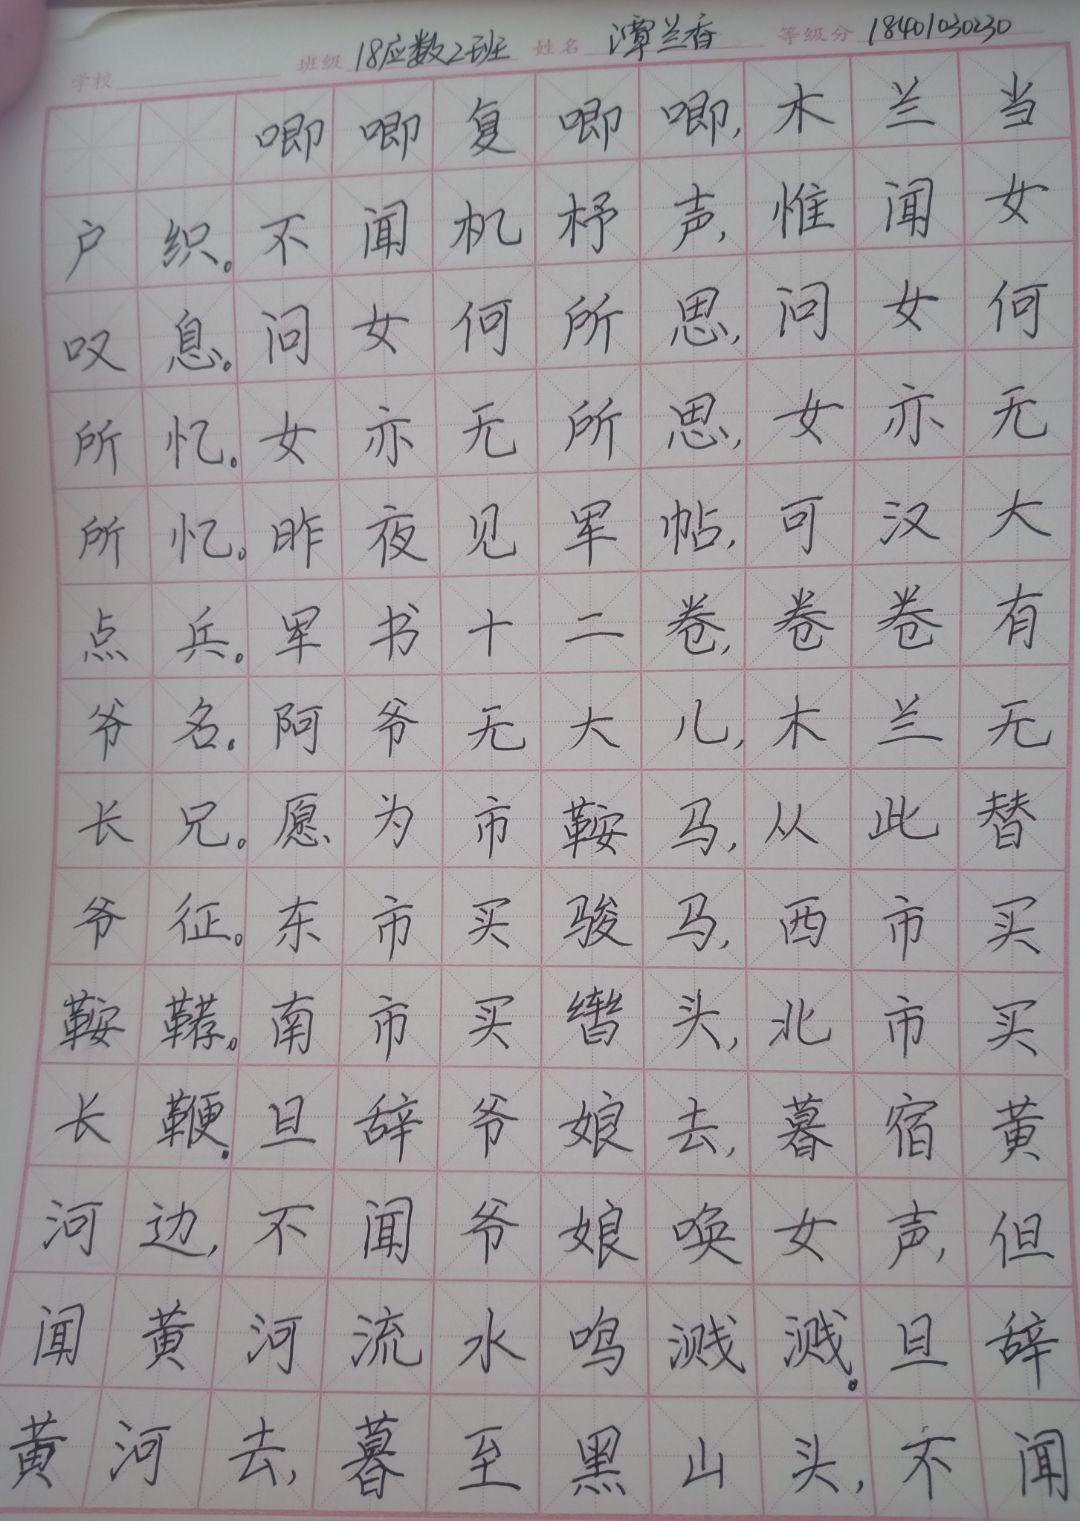 学校 班级 18应数2班 姓名 潭兰香 等级分 18401030230
唧唧复唧唧,木兰当
户织。不闻机杼声,惟闻女
叹息。问女何所思,问女何
所忆。女亦无所思,女亦无
所忆。昨夜见军帖,可汉大
点兵。军书十二卷,卷卷有
爷名。阿爷无大儿,木兰无
长兄。愿为市鞍马,从此替
爷征。东市买骏马,西市买
鞍鞯。南市买头,北市买
长鞭。旦辞爷娘去,暮宿黄
河边,不闻爷娘唤女声,但
闻黄河流水鸣溅溅。旦辞
黄河去,暮至黑山头,不闻